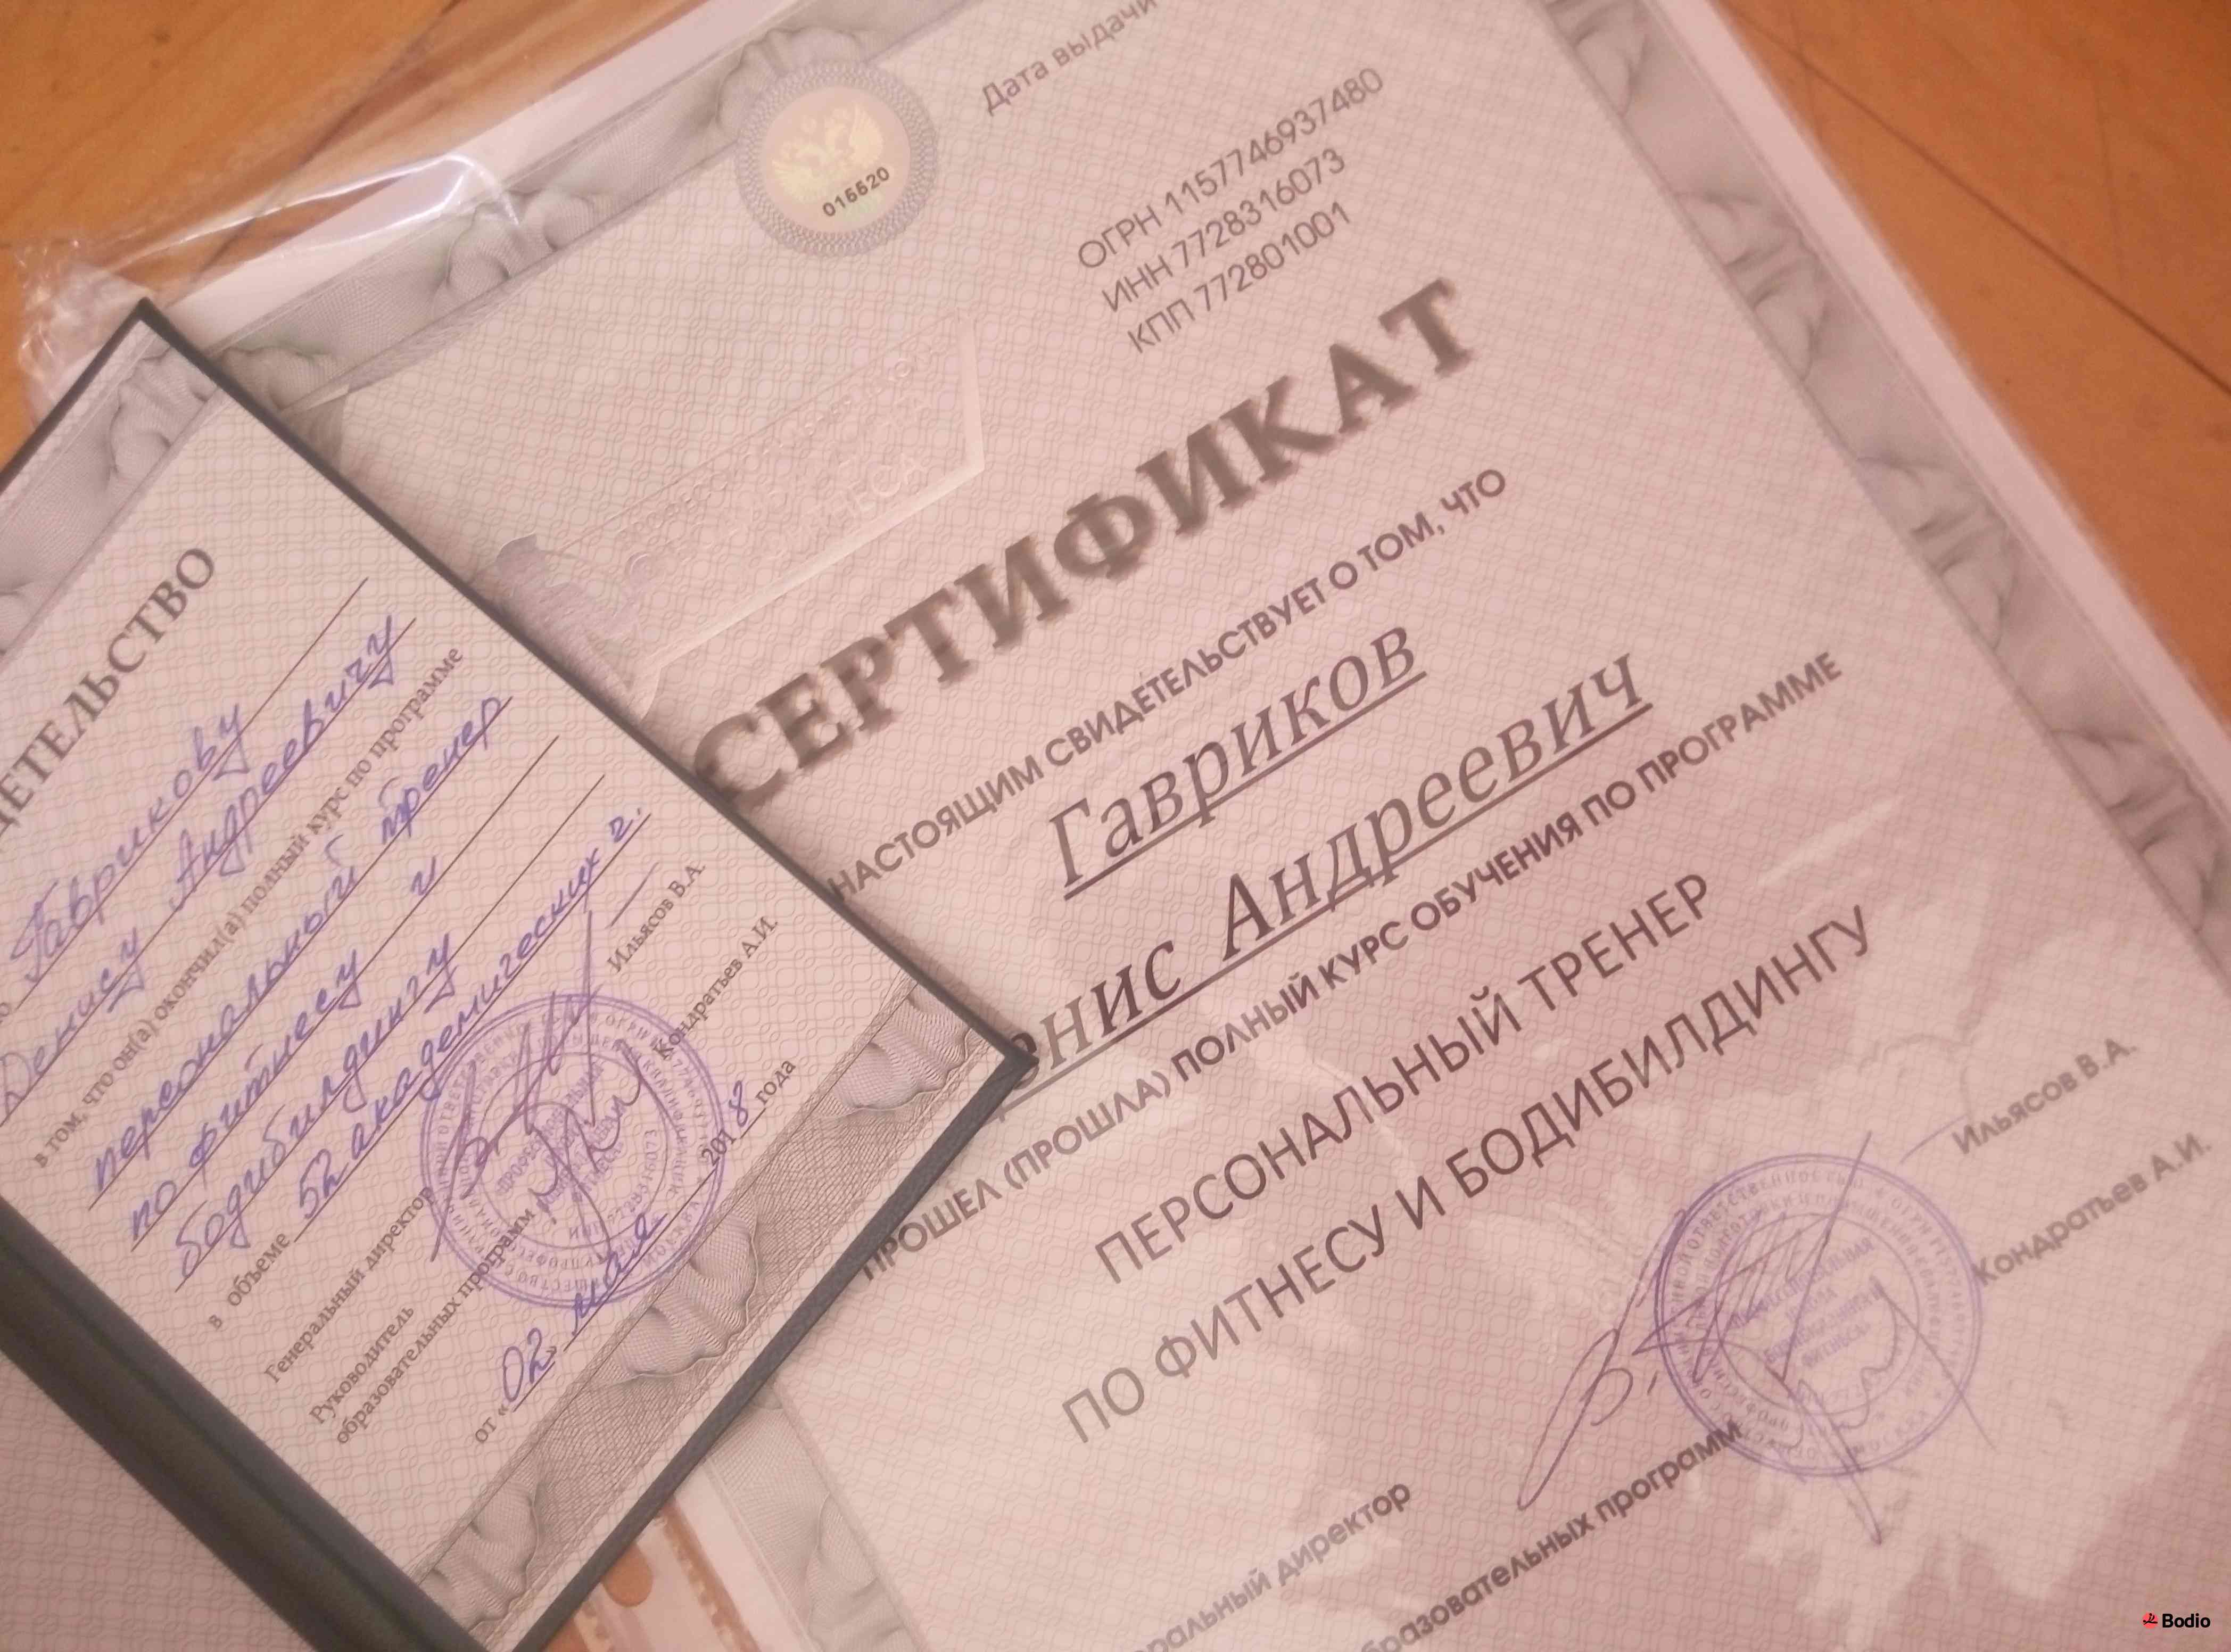 Дата выдачи
015520
ОГРН 1157746937480
ИНН 7728316073
КПП 772801001
СЕРТИФИКАТ
НАСТОЯЩИМ СВИДЕТЕЛЬСТВУЕТ О ТОМ, ЧТО
Гавриков
нис Андреевич
ПРОШЕЛ (ПРОШЛА) ПОЛНЫЙ КУРС ОБУЧЕНИЯ ПО ПРОГРАММЕ
ПЕРСОНАЛЬНЫЙ ТРЕНЕР
ПО ФИТНЕСУ И БОДИБИЛДИНГУ
ральный директор
Ильясов В.А.
разовательных программ
Кондратьев А.И.
ДЕТЕЛЬСТВО
Гаврикову
Денису Андреевичу
в том, что он(а) окончил(а) полный курс по программе
персональный тренер
по фитнесу и
бодибилдингу
в объеме 52 академических ч.
Генеральный директор
Ильясов В.А.
Руководитель
образовательных программ
Кондратьев А.И.
от «02» мая 2018 года
Bodio